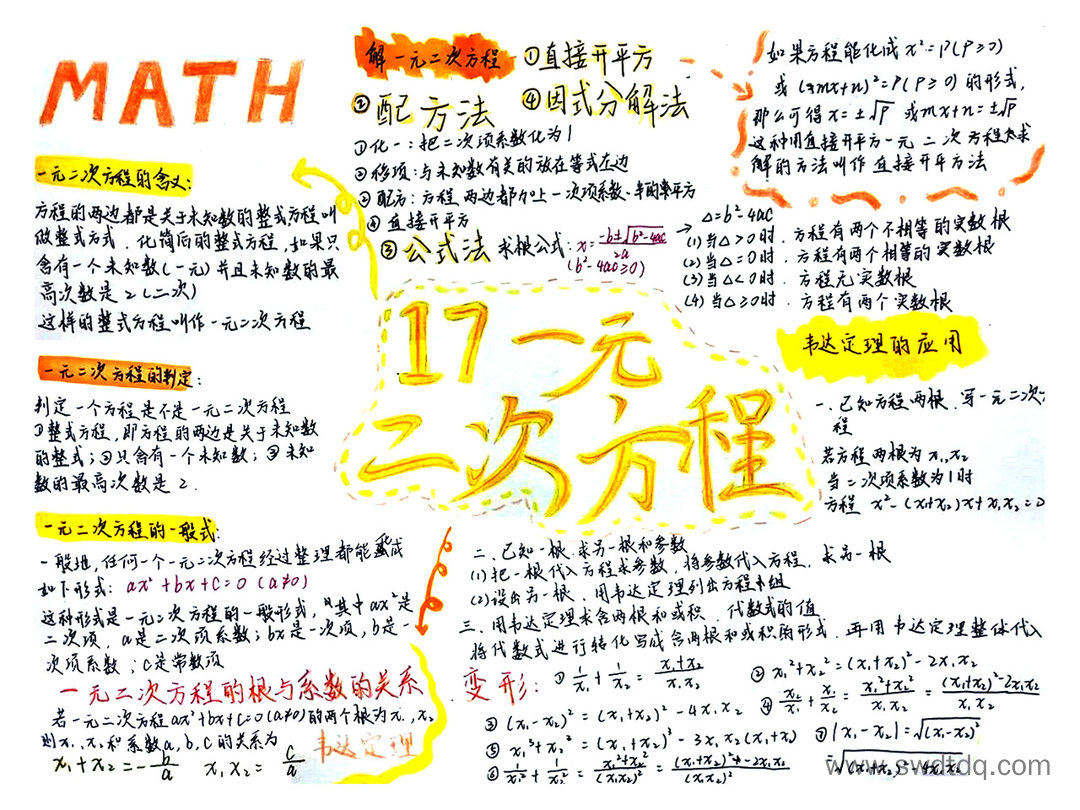 MATH
一元二次方程的含义:
方程的两边都是关于未知数的整式方程叫
做整式方式．化简后的整式方程，如果只
含有一个未知数(一元)并且未知数的最
高次数是2(二次)
这样的整式方程叫作一元二次方程
一元二次方程的判定：
判定一个方程是不是一元二次方程
①整式方程，即方程的两边是关于未知数
的整式；②只含有一个未知数；③未知
数的最高次数是2．
一元二次方程的一般式:
一般地，任何一个一元二次方程经过整理都能 成
如下形式: ax²+bx+c=0 (a≠0)
这种形式是一元二次方程的一般形式，其中ax²是
二次项，a是二次项系数；bx是一次项，b是一
次项系数；c是常数项
一元二次方程的根与系数的关系
若一元二次方程ax²+bx+c=0(a≠0)的两个根为x₁，x₂
则x₁，x₂和系数a,b,c的关系为
韦达定理
x₁+x₂=-b/a x₁x₂=c/a
解一元二次方程
①直接开平方
②配方法 ④因式分解法
①化一：把二次项系数化为1
②移项：与未知数有关的放在等式左边
③配方：方程两边都加上一次项系数一半的 平方
④直接开平方
③公式法 求根公式: x=(-b±√(b²-4ac))/2a
(b²-4ac≥0)
如果方程能化成x²=P(P≥0)
或(mx+n)²=P(P≥0)的形式，
那么可得x=±√P 或mx+n=±√P
这种用直接开平方一元二次方程 求
解的方法叫作直接开平方法
△=b²-4ac
(1)当△>0时．方程有两个不相等的实数根
(2)当△=0时．方程有两个相等的实数根
(3)当△<0时．方程无实数根
(4)当△≥0时．方程有两个实数根
17一元
二次方程
韦达定理的应用
一、已知方程两根．写一元二次方
程
若方程两根为x₁,x₂
当二次项系数为1时
方程 x²-(x₁+x₂)x+x₁x₂=0
二、已知一根．求另一根和参数
(1)把一根代入方程求参数，将参数代入方程．求另一根
(2)设出另一根．用韦达定理列出方程 组
三、用韦达定理求含两根和或积．代数式的值
将代数式进行转化写成含两根和或积的形式．再用韦达定理整体代入
变形：
①1/x₁+1/x₂=(x₁+x₂)/x₁x₂
②x₁²+x₂²=(x₁+x₂)²-2x₁x₂
③(x₁-x₂)²=(x₁+x₂)²-4x₁x₂
④x₂/x₁+x₁/x₂=(x₁²+x₂²)/x₁x₂=((x₁+x₂)²-2x₁x₂)/x₁x₂
⑤x₁³+x₂³=(x₁+x₂)³-3x₁x₂(x₁+x₂)
⑦|x₁-x₂|=√(x₁-x₂)²
=√((x₁+x₂)²-4x₁x₂)
⑥1/x₁²+1/x₂²=(x₁²+x₂²)/(x₁x₂)²=((x₁+x₂)²-2x₁x₂)/(x₁x₂)²
www.swdtdq.com